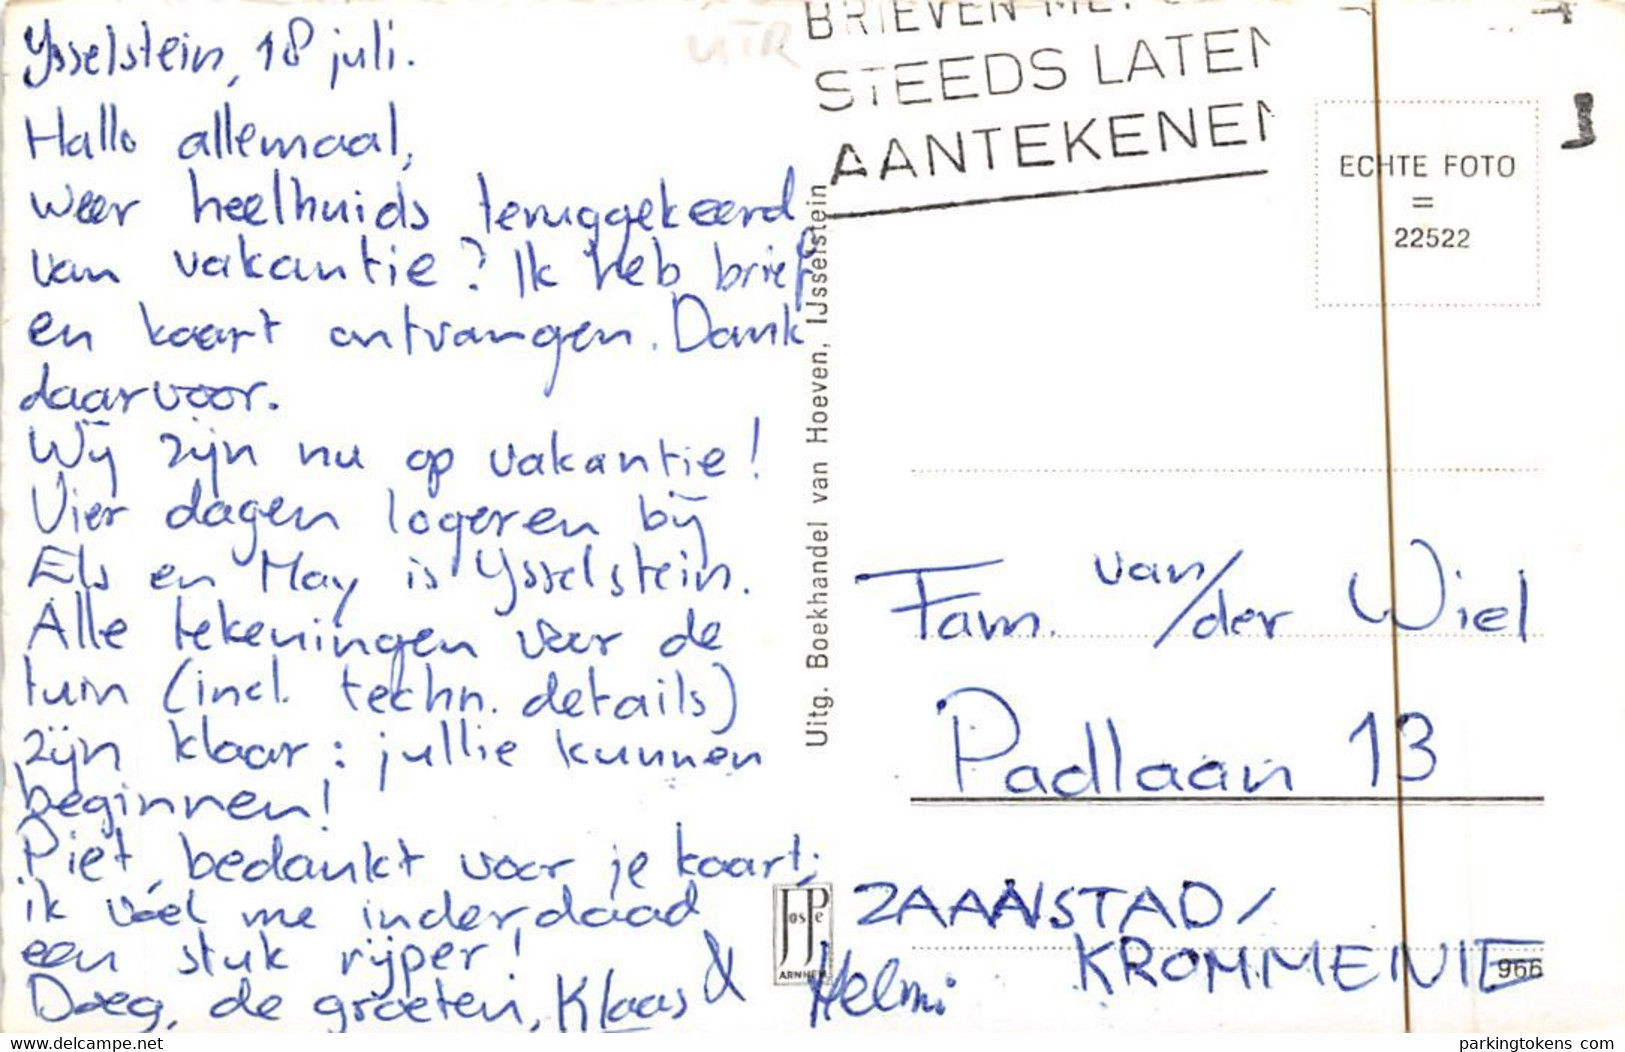 Ysselstein, 18 juli.
Hallo allemaal,
weer heelhuids teruggekeerd
van vakantie? Ik heb brief
en kaart ontvangen. Dank
daarvoor.
Wij zijn nu op vakantie!
Vier dagen logeren bij
Els en May is Ysselstein.
Alle tekeningen voor de
tuin (incl. techn. details)
zijn klaar: jullie kunnen
beginnen!
Piet, bedankt voor je kaart;
ik voel me inderdaad
een stuk rijper!
Doeg, de groeten, Klaas & Helmi
UTR
BRIEVEN
STEEDS LATEN
AANTEKENEN
Uitg. Boekhandel van Hoeven, IJsselstein
ECHTE FOTO
=
22522
Fam. van/der Wiel
Padlaan 13
ZAANSTAD/
KROMMENIE
JosPe
ARNHEM
966
www.delcampe.net
parkingtokens com